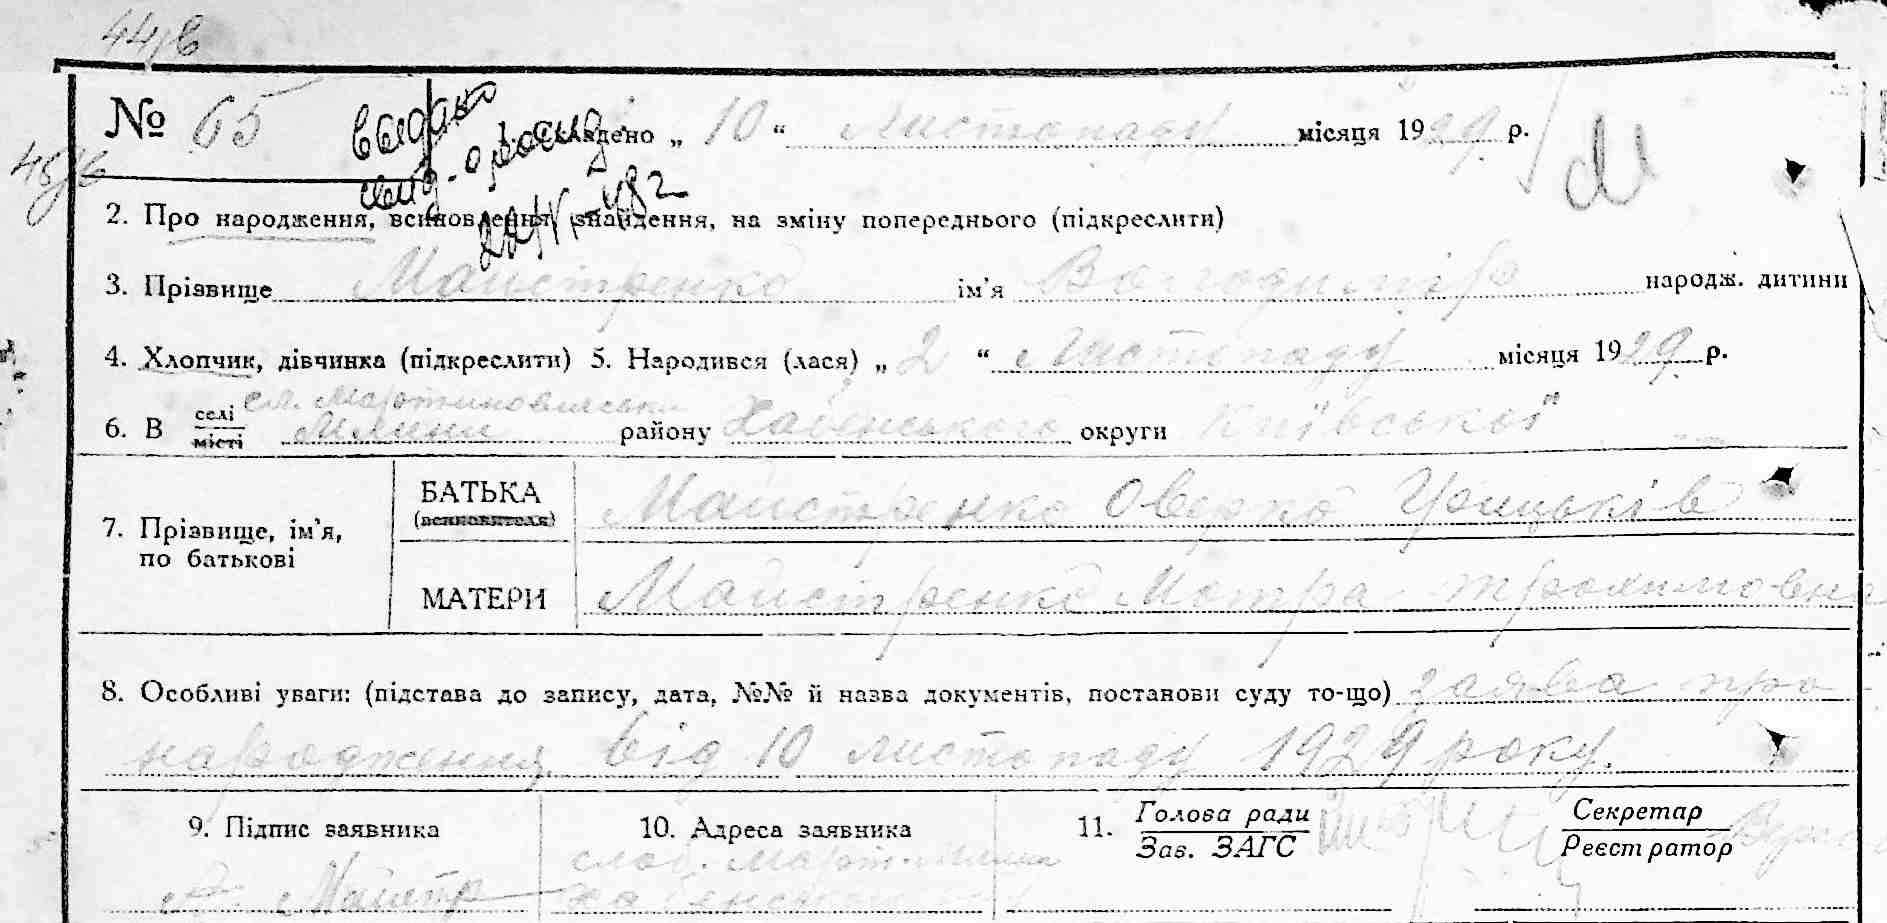 44/в
№ 65 1. Складено „ 10 “ Листопаду місяця 1929 р.
видано
2. Про народження, всиновлення, знайдення, на зміну попереднього (підкреслити)
3. Прізвище Майстренко ім’я Володимір народж. дитини
4. Хлопчик, дівчинка (підкреслити) 5. Народився (лася) „ 2 “ Листопаду місяця 1929 р.
6. В селі місті району Хабенського округи Київської
7. Прізвище, ім’я, по батькові
БАТЬКА (всиновителя) Майстренко Оверко Грицьків
МАТЕРИ Майстренко Мотра Трохимовна
8. Особливі уваги: (підстава до запису, дата, №№ й назва документів, постанови суду то-що) заява про
народження від 10 листопаду 1929 року.
9. Підпис заявника 10. Адреса заявника 11. Голова ради Зав. ЗАГС Секретар Реєстратор
слоб.
Майстр